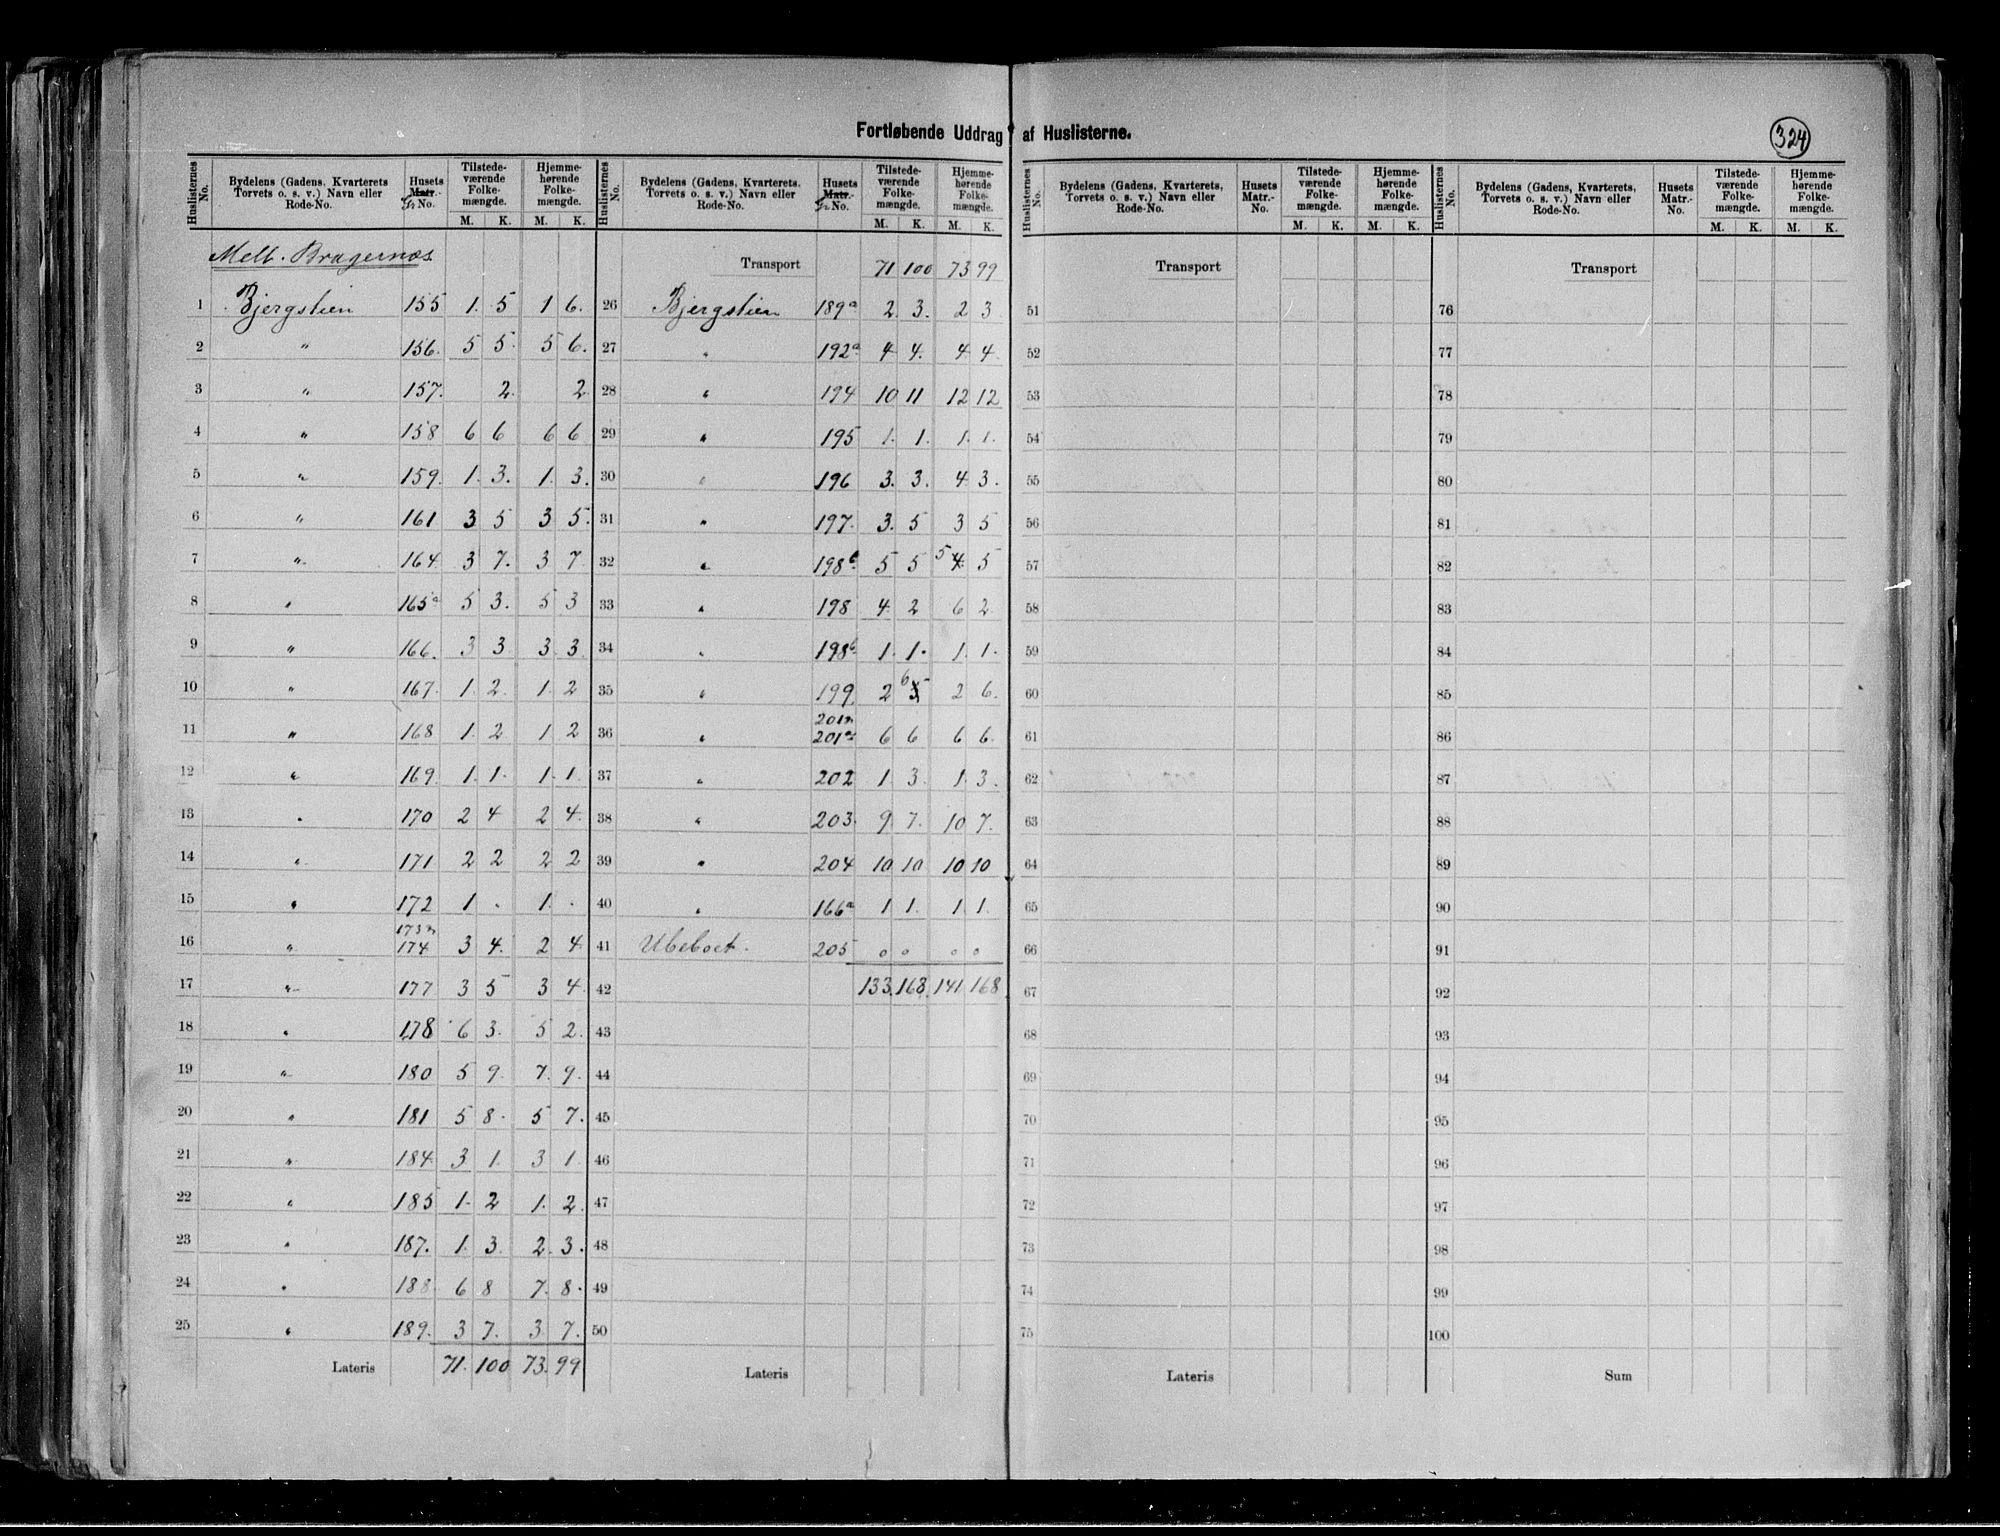 Fortløbende Uddrag af Huslisterne.
324
Huslisternes No. | Bydelens (Gadens, Kvarterets Torvets o. s. v.) Navn eller Rode-No. | Husets Matr. Gr No. | Tilstede-værende Folke-mængde. M. K. | Hjemme-hørende Folke-mængde. M. K.
Mell. Bragernæs.
1 Bjergstien 155 1. 5 1 6.
2 " 156. 5 5. 5 6.
3 " 157. 2. 2
4 " 158 6 6 6 6
5 " 159. 1. 3. 1. 3.
6 " 161 3 5 3 5.
7 " 164. 3 7. 3 7
8 " 165a 5 3. 5 3
9 " 166. 3 3 3. 3.
10 " 167. 1. 2. 1. 2
11 " 168 1. 2 1. 2
12 " 169. 1. 1. 1. 1.
13 " 170 2 4 2 4.
14 " 171 2 2 2 2
15 " 172 1 . 1. .
16 " 173 174 3 4. 2 4
17 " 177 3 5 3 4.
18 " 178 6 3. 5 2.
19 " 180 5 9. 7. 9.
20 " 181 5 8. 5 7.
21 " 184. 3 1. 3 1.
22 " 185 1. 2 1. 2.
23 " 187. 1. 3. 2. 3.
24 " 188. 6 8 7. 8.
25 " 189. 3 7. 3 7.
Lateris 71. 100 73. 99
Huslisternes No. | Bydelens (Gadens, Kvarterets, Torvets o. s. v.) Navn eller Rode-No. | Husets Matr. Gr No. | Tilstede-værende Folke-mængde. M. K. | Hjemme-hørende Folke-mængde. M. K.
Transport 71 100 73 99
26 Bjergstien 189a 2. 3. 2 3
27 " 192a 4. 4. 4. 4
28 " 194 10 11 12 12
29 " 195 1. 1. 1. 1.
30 " 196 3. 3. 4. 3.
31 " 197. 3. 5 3 5
32 " 198b 5 5 5 4 5
33 " 198 4. 2 6 2.
34 " 198b 1. 1. 1. 1.
35 " 199 2 6 5 2 6.
36 " 201 201a 6 6 6 6.
37 " 202 1. 3. 1. 3.
38 " 203. 9. 7. 10 7.
39 " 204 10 10 10 10
40 " 166a 1 1. 1. 1.
41 Ubeboet. 205 0 0 0 0
42 133. 168. 141 168
43
44
45
46
47
48
49
50
Lateris
Huslisternes No. | Bydelens (Gadens, Kvarterets Torvets o. s. v.) Navn eller Rode-No. | Husets Matr.-No. | Tilstede-værende Folke-mængde. M. K. | Hjemme-hørende Folke-mængde. M. K.
Transport
51
52
53
54
55
56
57
58
59
60
61
62
63
64
65
66
67
68
69
70
71
72
73
74
75
Lateris
Huslisternes No. | Bydelens (Gadens, Kvarterets, Torvets o. s. v.) Navn eller Rode-No. | Husets Matr.-No. | Tilstede-værende Folke-mængde. M. K. | Hjemme-hørende Folke-mængde. M. K.
Transport
76
77
78
79
80
81
82
83
84
85
86
87
88
89
90
91
92
93
94
95
96
97
98
99
100
Sum